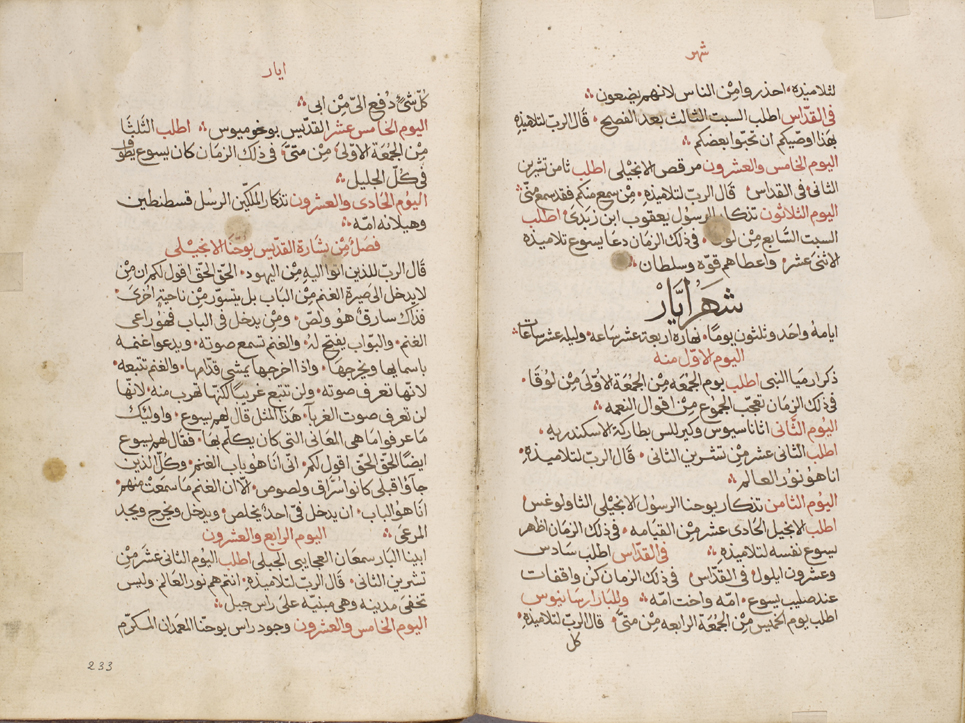 شهر
لتلاميذه احذروا من الناس لانهم يضعون
في القدّاس اطلب السبت الثالث بعد الفصح قال الربّ لتلاميذه
بهذا اوصيكم ان تحبّوا بعضكم
اليوم الخامس والعشرون مرقص الانجيلي اطلب ثامن تشرين
الثاني في القداس قال الربّ لتلاميذه من سمع منكم فقد سمع منّي
اليوم الثلاثون تذكار الرسول يعقوب ابن زبدي اطلب
السبت السّابع من لوقا في ذلك الزمان دعا يسوع تلاميذه
الاثنى عشر واعطاهم قوّه وسلطان
شهر ايّار
ايامه واحد وثلثون يوما نهاره اربعة عشر ساعه وليله عشر ساعات
اليوم الاوّل منه
ذكر ارميا النبى اطلب يوم الجمعه من الجمعة الاولى من لوقا
في ذلك الزمان تعجّب الجموع من اقوال النعمه
اليوم الثّاني اثاناسيوس وكيرللس بطاركة الاسكندريه
اطلب الثاني عشر من تشرين الثاني قال الربّ لتلاميذه
انا هو نور العالم
اليوم الثامن تذكار يوحنا الرسول الانجيلي الثاولوغس
اطلب الانجيل الحادي عشر من القيامه في ذلك الزمان اظهر
يسوع نفسه لتلاميذه في القدّاس اطلب سادس
وعشرون ايلول في القدّاس في ذلك الزمان كن واقفات
عند صليب يسوع امّه واخت امّه وللبار ارسانيوس
اطلب يوم الخميس من الجمعة الرابعه من متّى قال الربّ لتلاميذه
كل
ايار
كلّ شيء دفع اليّ من ابي
اليوم الخامس عشر القدّيس بوخوميوس اطلب الثّلثا
من الجمعة الاولى من متّى في ذلك الزمان كان يسوع يطوف
في كلّ الجليل
اليوم الحادي والعشرون تذكار الملكين الرسل قسطنطين
وهيلانه امّه
فصل من بشارة القدّيس يوحنا الانجيلي
قال الربّ للذين اتوا اليه من اليهود الحق الحق اقول لكم ان من
لا يدخل الى صيرة الغنم من الباب بل يتسوّر من ناحية اخرى
فذاك سارق هو ولصّ ومن يدخل في الباب فهو راعي
الغنم والبوّاب يفتح له والغنم تسمع صوته ويدعوا غنمه
باسمايها ويخرجها واذا اخرجها يمشي قدّامها والغنم تتبعه
لانّها تعرف صوته ولن تتبع غريبا لكنّها تهرب منه لانّها
لن تعرف صوت الغربآ هذا المثل قال لهم يسوع واوليك
ما عرفوا ما هي المعاني التي كان يكلّمهم بها فقال لهم يسوع
ايضا الحقّ الحقّ اقول لكم انّي انا هو باب الغنم وكلّ الذين
جآوا قبلي كانوا سرّاق ولصوص الّا ان الغنم ما سمعت منهم
انا هو الباب ان يدخل فيّ احد يخلص ويدخل ويخرج ويجد
المرعى اليوم الرابع والعشرون
ابينا البار سمعان العجايبى الجبلى اطلب اليوم الثاني عشر من
تشرين الثاني قال الربّ لتلاميذه انتم هم نور العالم وليس
تخفى مدينه وهي مبنيّه على راس جبل
اليوم الخامس والعشرون وجود راس يوحنا المعمدان المكرّم
233